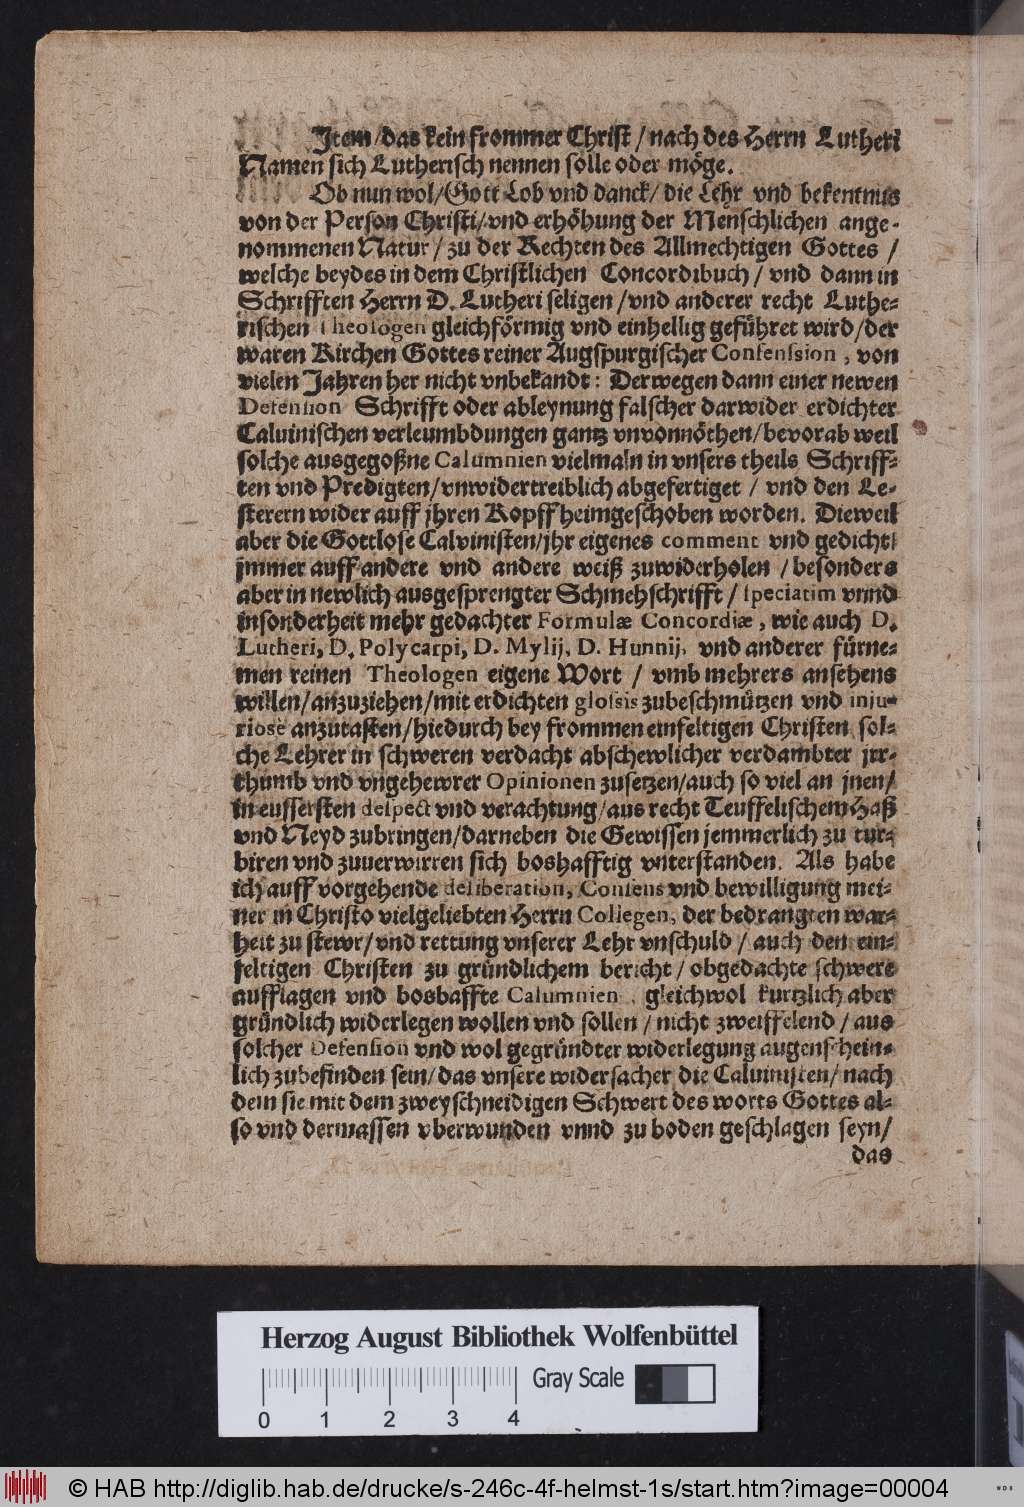 Item/das kein frommer Christ/nach des Herrn Lutheri
Namen sich Lutherisch nennen solle oder möge.
Ob nun wol/Gott Lob vnd danck/die Lehr vnd bekentnus
von der Person Christi/vnd erhöhung der Menschlichen ange-
nommenen Natur/zu der Rechten des Allmechtigen Gottes/
welche beydes in dem Christlichen Concordibuch/vnd dann in
Schrifften Herrn D. Lutheri seligen/vnd anderer recht Luthe-
rischen Theologen gleichförmig vnd einhellig geführet wird/der
waren Kirchen Gottes reiner Augspurgischer Confenssion, von
vielen Jahren her nicht vnbekandt: Derwegen dann einer newen
Defension Schrifft oder ableynung falscher darwider erdichter
Caluinischen verleumbdungen gantz vnvonnöthen/bevorab weil
solche ausgegoßne Calumnien vielmaln in vnsers theils Schriff-
ten vnd Predigten/vnwidertreiblich abgefertiget/vnd den Le-
sterern wider auff jhren Kopff heimgeschoben worden. Dieweil
aber die Gottlose Calvinisten/jhr eigenes comment vnd gedicht/
jmmer auff andere vnd andere weiß zuwiderholen/besonders
aber in newlich ausgesprengter Schmehschrifft/speciatim vnnd
insonderheit mehr gedachter Formulæ Concordiæ, wie auch D.
Lutheri, D. Polycarpi, D. Mylij, D. Hunnij, vnd anderer fürne-
men reinen Theologen eigene Wort/vmb mehrers ansehens
willen/anzuziehen/mit erdichten glossis zubeschmützen vnd inju-
riose anzutasten/hiedurch bey frommen einfeltigen Christen sol-
che Lehrer in schweren verdacht abschewlicher verdambter jrr-
thumb vnd vngehewrer Opinionen zusetzen/auch so viel an jnen/
in eussersten despect vnd verachtung/aus recht Teuffelischem Haß
vnd Neyd zubringen/darneben die Gewissen jemmerlich zu tur-
biren vnd zuuerwirren sich boshafftig vnterstanden. Als habe
ich auff vorgehende deliberation, Consens vnd bewilligung mei-
ner in Christo vielgeliebten Herrn Collegen, der bedrangten war-
heit zu stewr/vnd rettung vnserer Lehr vnschuld/auch den ein-
feltigen Christen zu gründlichem bericht/obgedachte schwere
aufflagen vnd boshaffte Calumnien, gleichwol kurtzlich aber
gründlich widerlegen wollen vnd sollen/nicht zweiffelend/aus
solcher Defension vnd wol gegründter widerlegung augenschein-
lich zubefinden sein/das vnsere widersacher die Caluinisten/nach
dem sie mit dem zweyschneidigen Schwert des worts Gottes al-
so vnd dermassen vberwunden vnnd zu boden geschlagen seyn/
das
Herzog August Bibliothek Wolfenbüttel
Gray Scale
0 1 2 3 4
© HAB http://diglib.hab.de/drucke/s-246c-4f-helmst-1s/start.htm?image=00004